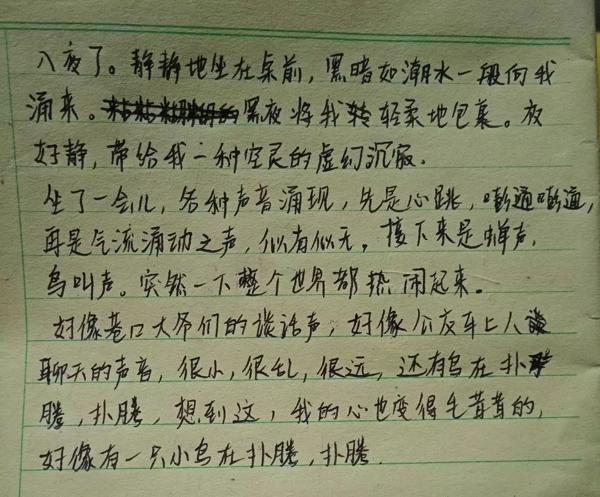 入夜了。静静地坐在桌前,黑暗如潮水一段向我
涌来。黑夜将我轻柔地包裹。夜
好静,带给我一种空灵的虚幻沉寂.
坐了一会儿,各种声音涌现,先是心跳,嘭通嘭通,
再是气流涌动之声,似有似无。接下来是蝉声,
鸟叫声。突然一下整个世界都热闹起来。
好像巷口大爷们的谈话声,好像公交车上人
聊天的声音,很小,很乱,很远,还有鸟在扑
腾,扑腾,想到这,我的心也变得毛茸茸的,
好像有一只小鸟在扑腾,扑腾.